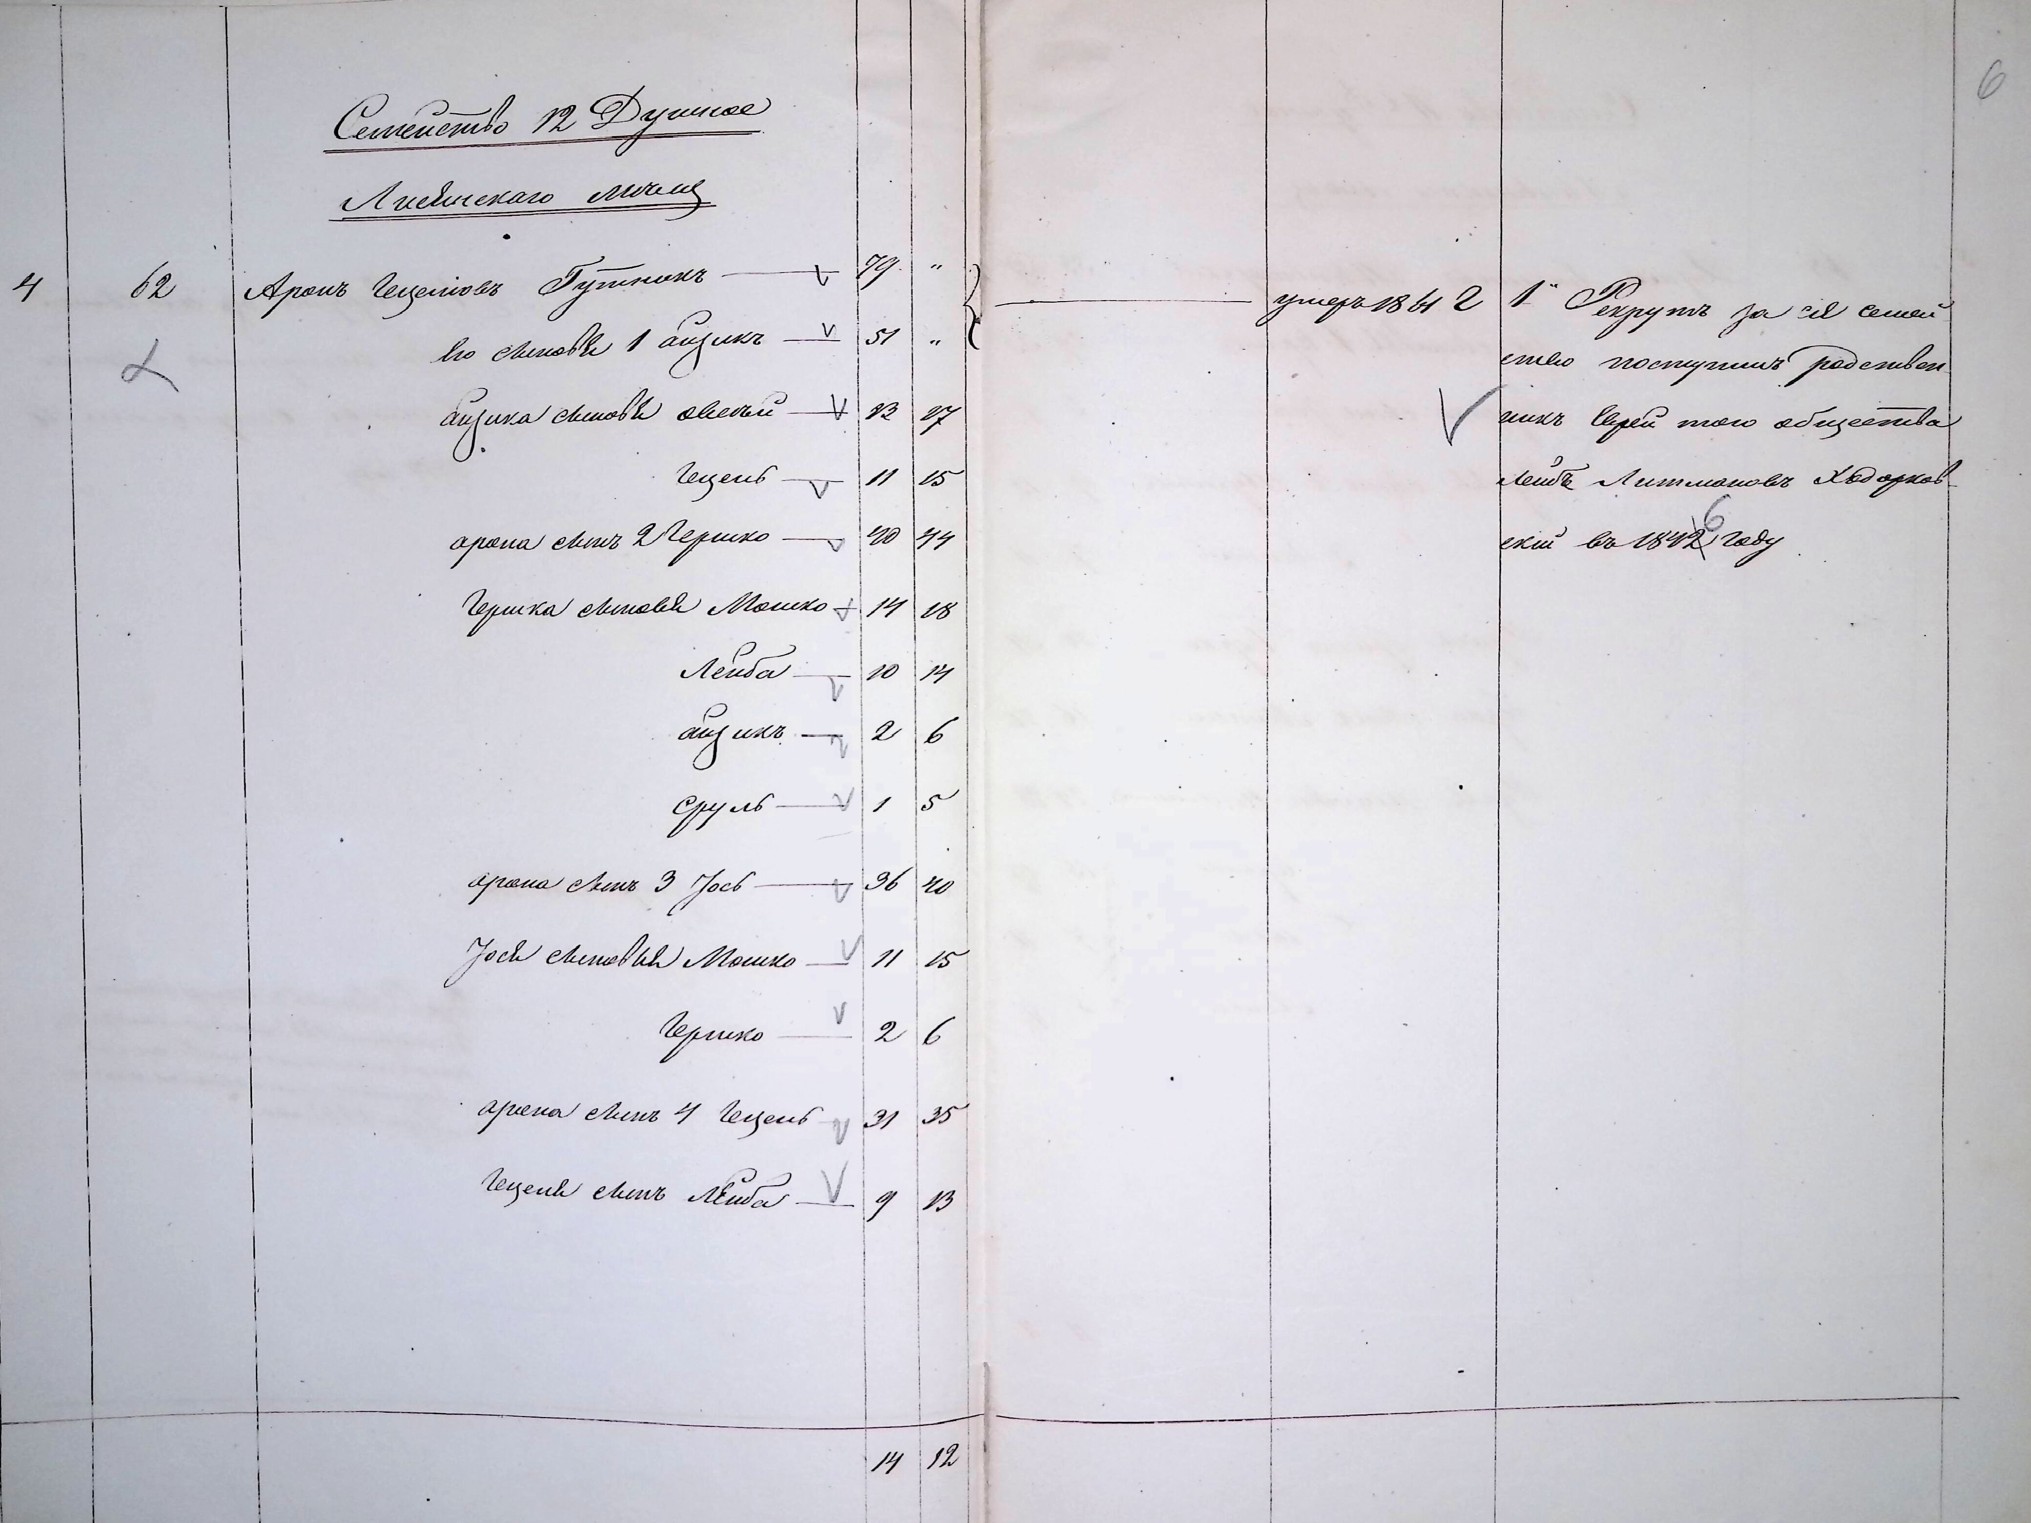 6
Семейство 12 Душное
Лисянскаго мѣщ
4 62 Аронъ Гецелювъ Гутникъ 79 " умеръ 1841 2
его сыновья 1 айзикъ 51 "
айзика сыновья овсѣй 13 17
Гецель 11 15
арона сынъ 2 Гершко 40 44
Гершка сыновья Мошко 14 18
Лейба 10 14
айзикъ 2 6
Сруль 1 5
арона сынъ 3 Іось 36 40
Іося сыновья Мошко 11 15
Гершко 2 6
арона сынъ 4 Гецель 31 35
Гецеля сынъ Лейба 9 13
14 12
1" Рекрутъ за сіе семей
ство поступилъ родствен
никъ Еврей того общества
Лейбъ Литмановъ Ходорков
скій въ 1842 6 Году